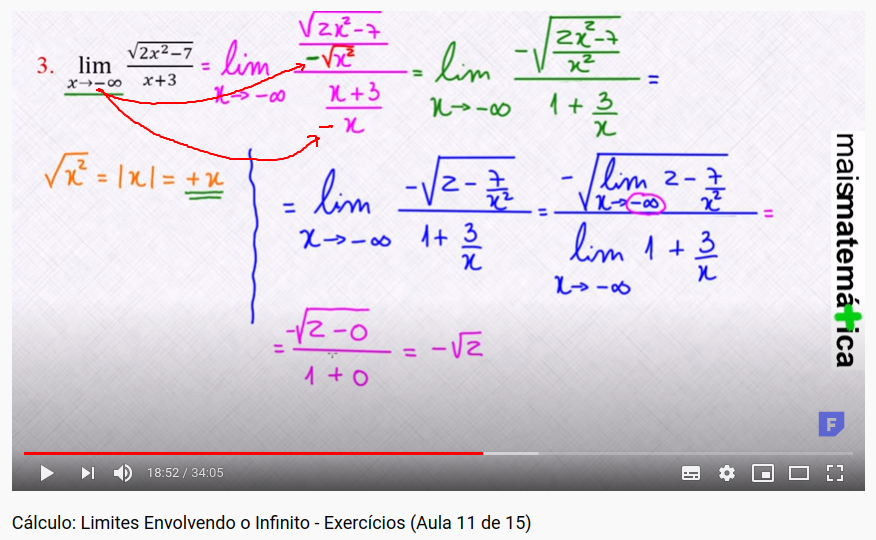 3. lim x→−∞ √(2x²−7) / (x+3) = lim x→−∞ (√(2x²−7) / −√x²) / ((x+3) / −x) = lim x→−∞ −√((2x²−7)/x²) / (1 + 3/x) =
√x² = |x| = +x
= lim x→−∞ −√(2 − 7/x²) / (1 + 3/x) = −√(lim x→−∞ 2 − 7/x²) / (lim x→−∞ 1 + 3/x) =
= −√(2−0) / (1+0) = −√2
maismatemática
F
18:52 / 34:05
Cálculo: Limites Envolvendo o Infinito - Exercícios (Aula 11 de 15)